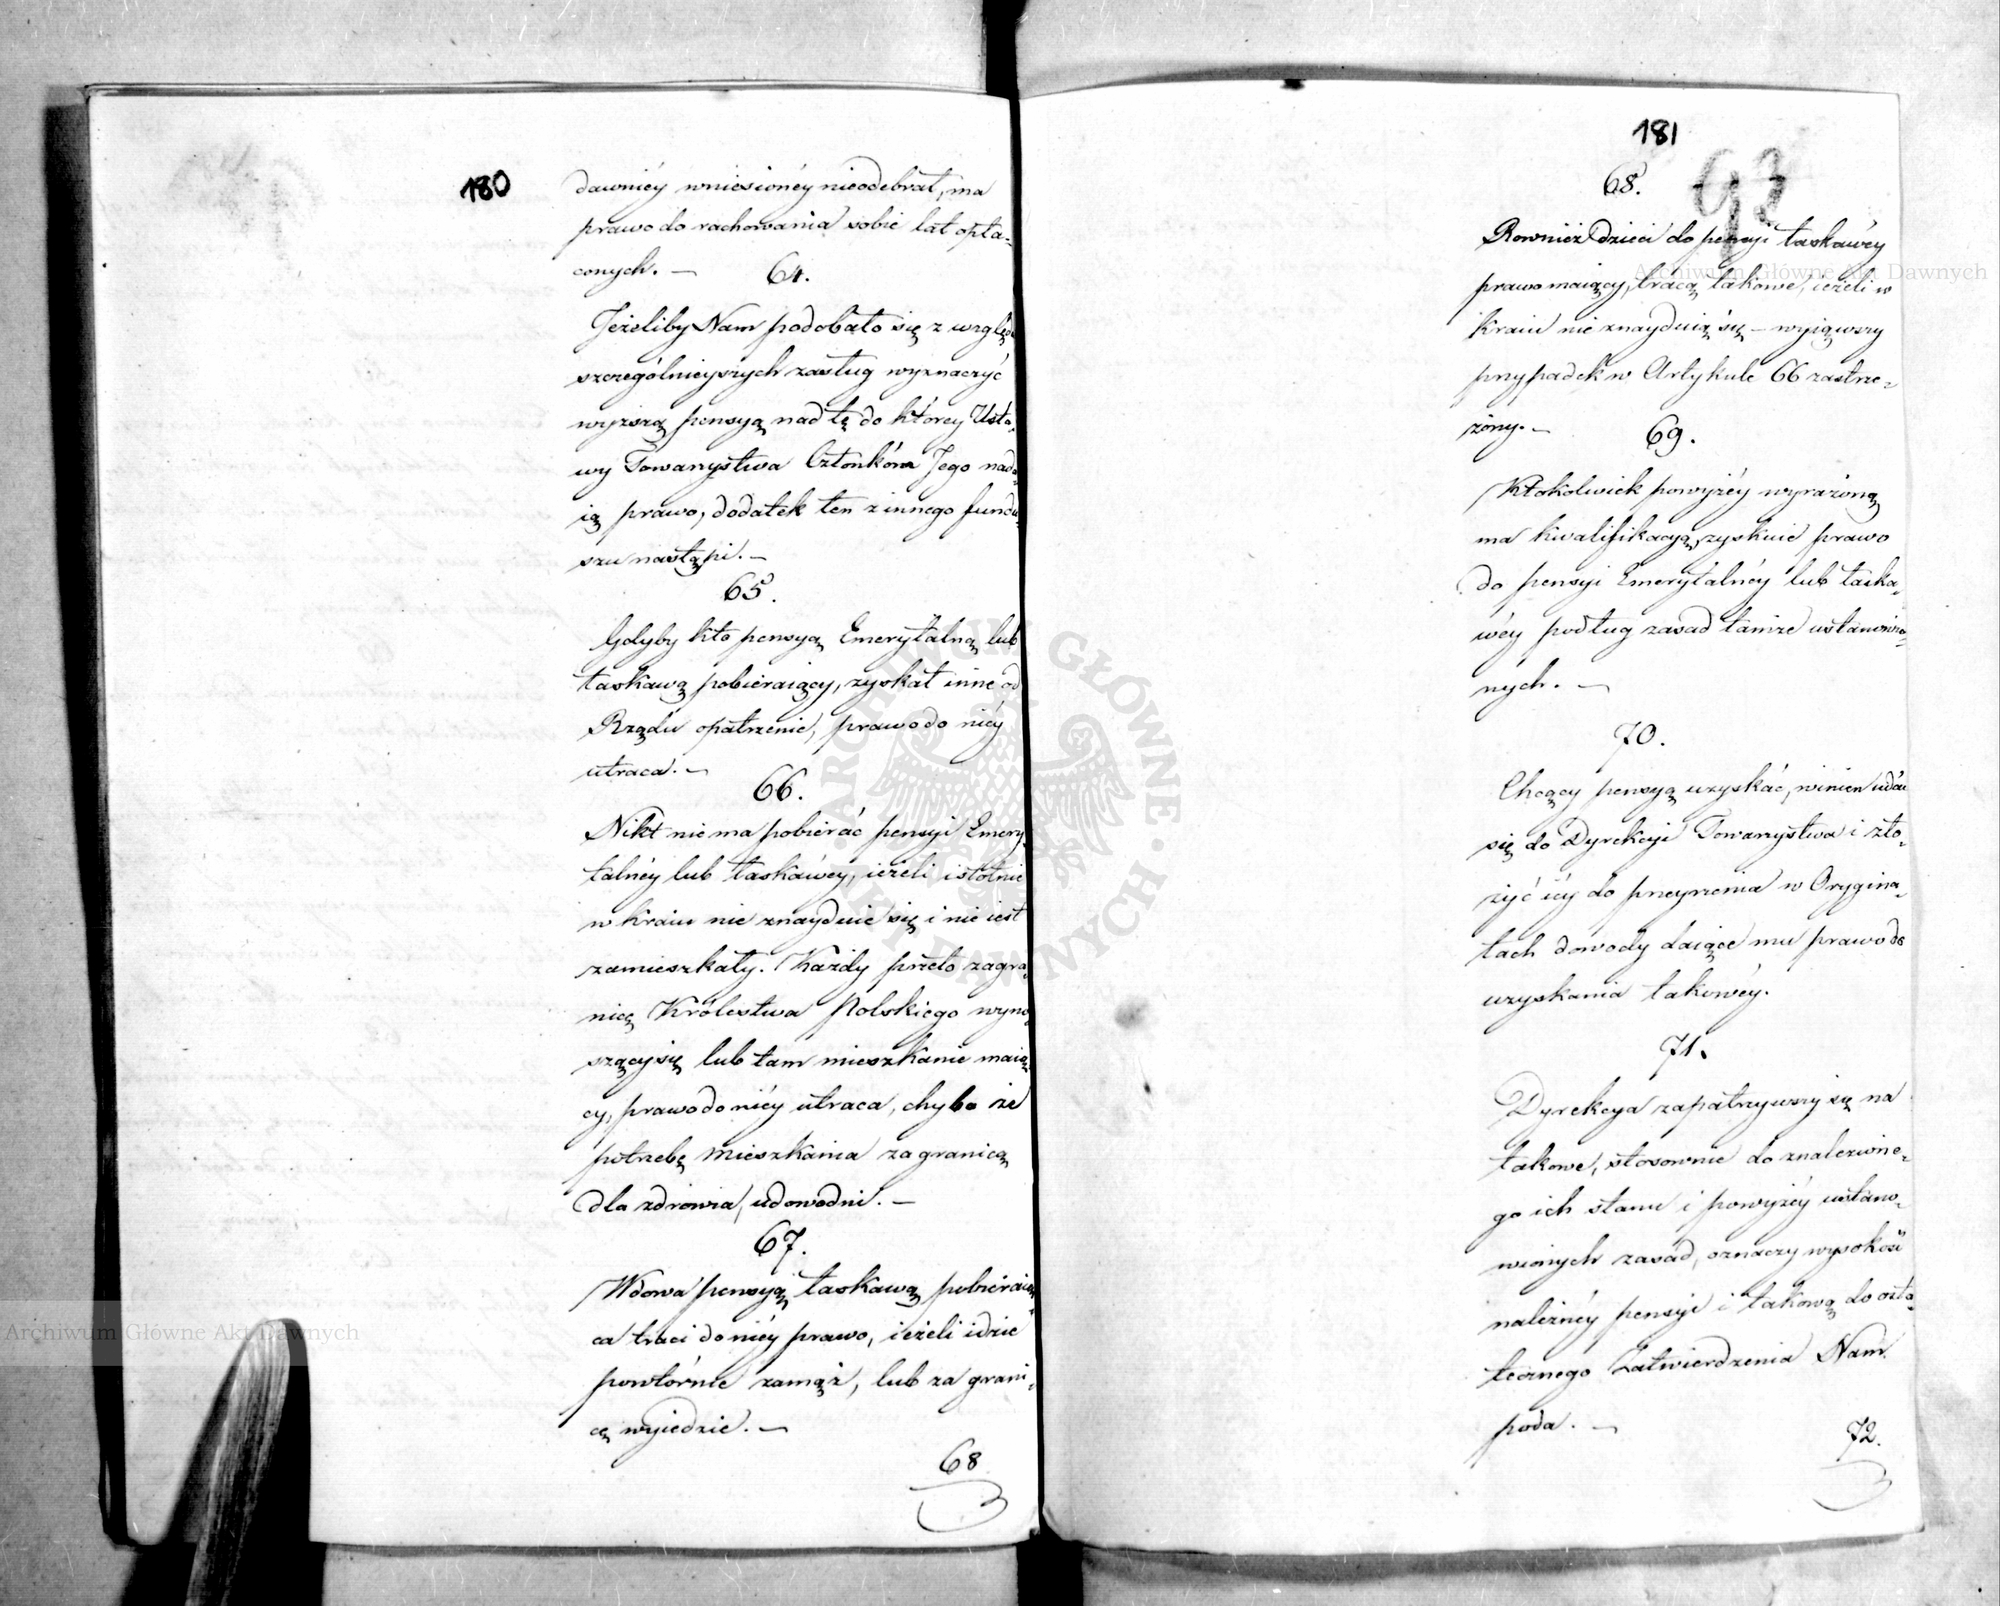 180
dawniéy wniesionéy nieodebrał, ma
prawo do rachowania sobie lat opła-
conych. —
64.
Jeżeliby Nam podobało się z wzglę
szczególnieyszych zasług wyznaczyć
wyższą pensyą nad tę do którey Usta-
wy Towarzystwa Członkóm Jego nada-
ią prawo, dodatek ten z innego fundu-
szu nastąpi. —
65.
Gdyby kto pensyą Emerytalną lub
łaskawą pobieraiący, zyskał inne od
Rządu opatrzenie, prawo do niéy
utraca. —
66.
Nikt nie ma pobierać pensyi Emery-
talnéy lub łaskawéy, ieżeli istotnie
w kraiu nie znayduie się i nie iest
zamieszkały. Każdy przeto zagra-
nicę Królestwa Polskiego wyno-
szący się lub tam mieszkanie maią-
cy, prawo do niéy utraca, chyba że
potrzebę mieszkania za granicą
dla zdrowia, udowodni. —
67.
Wdowa pensyą łaskawą pobieraią-
ca traci do niéy prawo, ieżeli idzie
powtórnie zamąż, lub za grani-
cę wyiedzie. —
68
181
93
68.
Rownież Dzieci do pensyi łaskawéy
prawo maiący, tracą takowe, ieżeli w
kraiu nie znayduią się — wyiąwszy
przypadek w Artykule 66 zastrze-
żony. —
69.
Ktokolwiek powyżéy wyrażoną
ma kwalifikacyą, zyskuie prawo
do pensyi Emerytalnéy lub łaska-
wéy podług zasad tamże ustanowio-
nych. —
70.
Chcący pensyą uzyskać, winien udać
się do Dyrekcyi Towarzystwa i zło-
żyć iéy do przeyrzenia w Orygina-
łach dowody daiące mu prawo do
uzyskania takowéy.
71.
Dyrekcya zapatrzywszy się na
takowe, stosownie do znalezione-
go ich stanu i powyżéy ustano-
wionych zasad, oznaczy wysokość
należnéy pensyi i takową do osta-
tecznego Zatwierdzenia Nam
poda. —
72.
Archiwum Główne Akt Dawnych
Archiwum Główne Akt Dawnych
ARCHIWUM GŁÓWNE AKT DAWNYCH